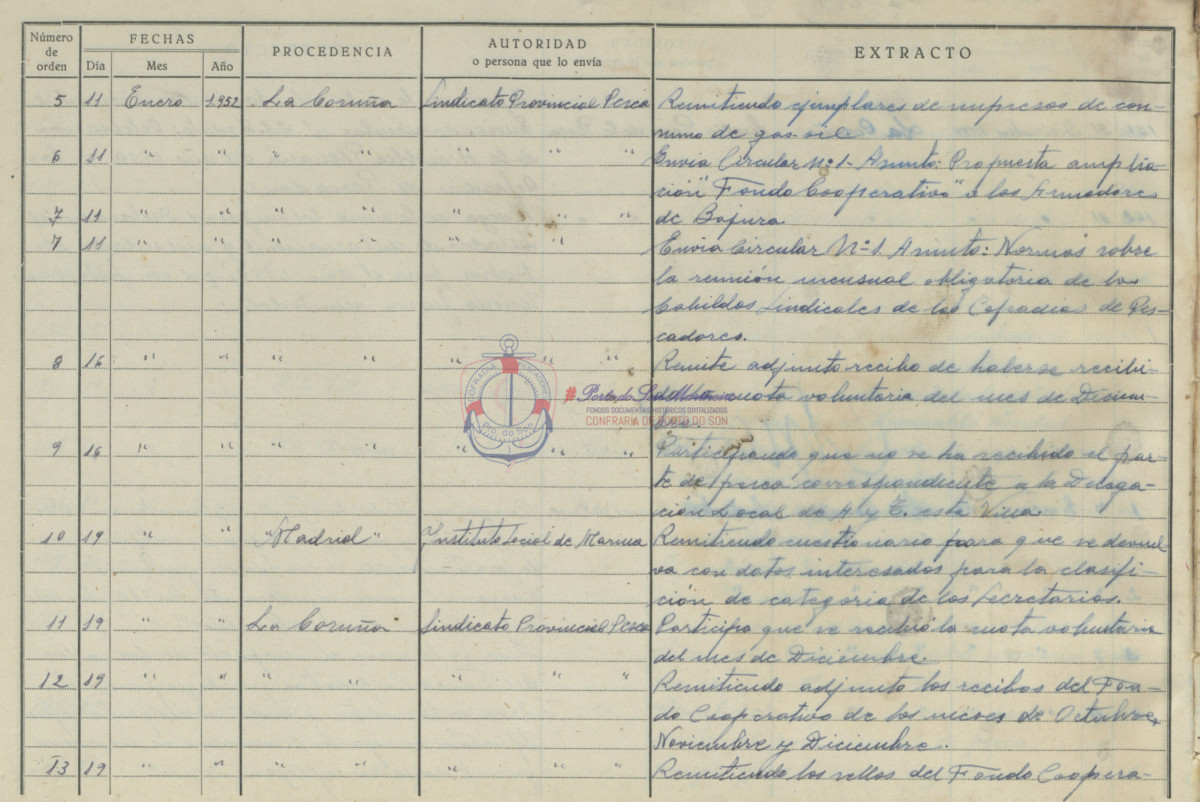 Número de orden FECHAS PROCEDENCIA AUTORIDAD o persona que lo envía EXTRACTO
Día Mes Año
5 11 Enero 1.952 La Coruña Sindicato Provincial Pesca Remitiendo ejemplares de impresos de con-
sumo de gas-oil
6 11 " " " " " " " Envia Circular Nº 1- Asunto: Propuesta amplia
ción "Fondo Cooperativo" a los Armadores
7 11 " " " " " " de Bajura
7 11 " " " " " " Envia Circular Nº 1. Asunto: Normas sobre
la reunión mensual obligatoria de los
Cabildos Sindicales de las Cofradias de Pes-
cadores.
8 16 " " " " " " " Remite adjunto recibo de haberse recibi-
cuota voluntaria del mes de Diciem-
COFRADIA PESCADORES
Pto. do Son
# Porto do Son
FONDOS DOCUMENTAIS HISTÓRICOS DIXITALIZADOS
CONFRARÍA DE PORTO DO SON
9 16 " " " " " " " Participando que no se ha recibido el par-
te de pesca correspondiente a la Delega-
ción Local de A y E. esta Villa.
10 19 " " "Madrid" Instituto Social de Marina Remitiendo cuestionario para que se devuel-
va con datos interesados para la clasifi-
ción de categoria de los Secretarios.
11 19 " " La Coruña Sindicato Provincial Pesca Participa que se recibió la cuota voluntaria
del mes de Diciembre.
12 19 " " " " " " " Remitiendo adjunto los recibos del Fon-
do Cooperativo de los meses de Octubre,
Noviembre y Diciembre.
13 19 " " " " " " " Remitiendo los sellos del Fondo Coopera-